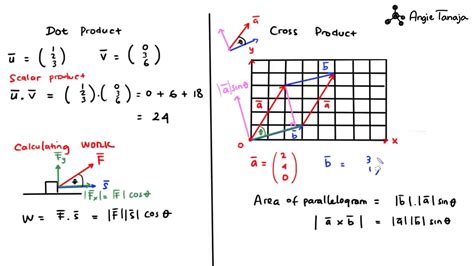 Angie Tanaja
Dot Product
u̅ = (1 2 3) v̅ = (0 3 6)
Scalar product
u̅ . v̅ = (1 2 3) . (0 3 6) = 0 + 6 + 18
= 24
Calculating WORK
F̅y F̅
θ
|F̅x| = |F̅| cos θ
s̅
W = F̅ . s̅ = |F̅||s̅| cos θ
a̅
θ
y
Cross Product
b̅
|a̅| sin θ
a̅ a̅
θ b̅
O x
a̅ = (2 4 0) b̅ = 3 1
Area of parallelogram = |b̅| . |a̅| sin θ
| a̅ × b̅ | = |a̅||b̅| sin θ